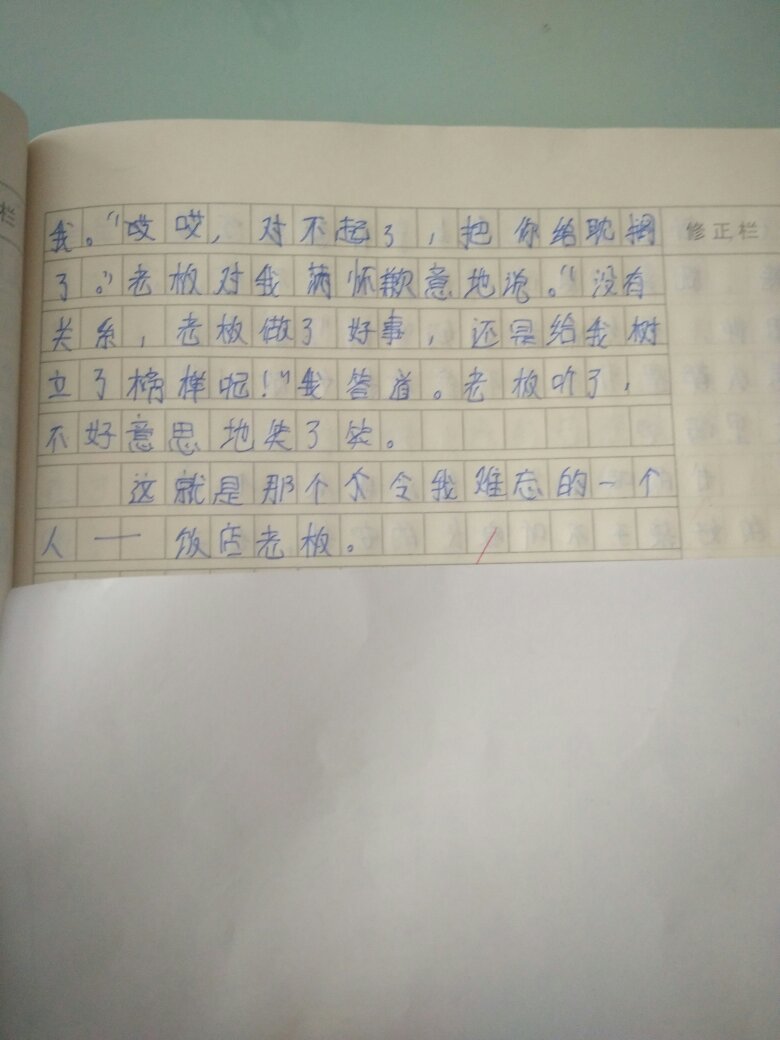 栏
我。“哎哎，对不起了，把你给耽搁
修正栏
了。”老板对我满怀歉意地说。“没有
关系，老板做了好事，还是给我树
立了榜样呢！”我答道。老板听了，
不好意思地笑了笑。
这就是那个个令我难忘的一个
人——饭店老板。